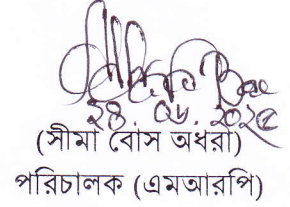 ২৪.০৮.২০২৫
(সীমা বোস অধরা)
পরিচালক (এমআরপি)